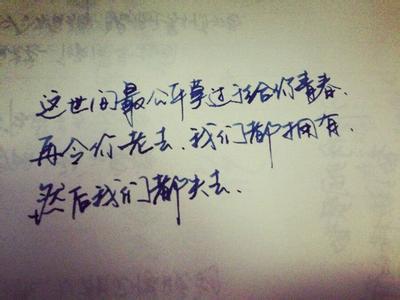 这世间最公平莫过于给你青春.
再令你老去.我们都拥有.
然后我们都失去.